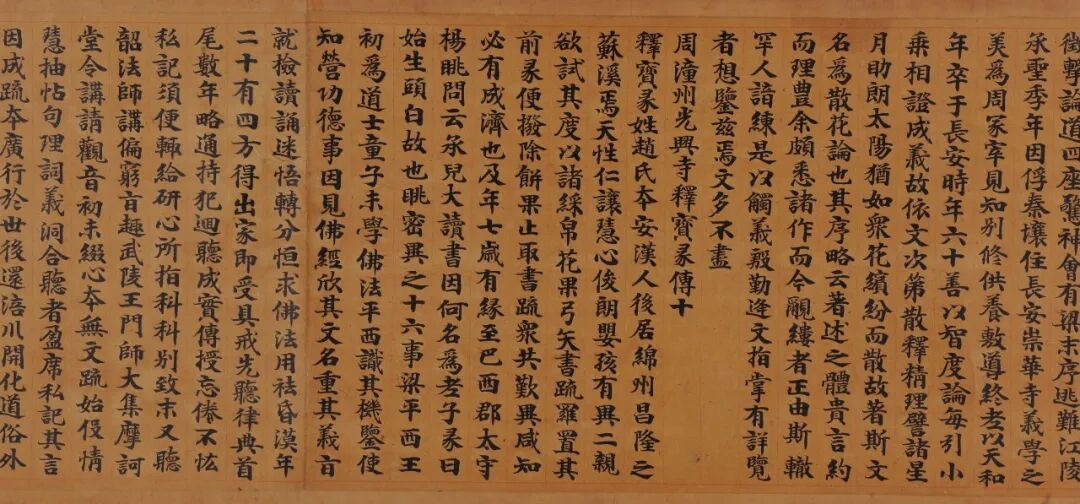 徴擊論道四座驚神會有梁末序逃難江陵
承聖季年因俘秦壤住長安崇華寺義學之
美爲周冢宰見知別修供養敷導終老以天和
年卒于長安時年六十善以智度論每引小
乘相證成義故依文次第散釋精理譬諸星
月助朗太陽猶如衆花繽紛而散故著斯文
名爲散花論也其序略云著述之體貴言約
而理豊余頗悉諸作而今覼縷者正由斯轍
罕人諳練是以觸義殷勤逢文指掌有詳覽
者想鑒茲焉文多不盡
周潼州光興寺釋寶彖傳十
釋寶彖姓趙氏本安漢人後居綿州昌隆之
蘇溪焉天性仁讓慧心俊朗嬰孩有異二親
欲試其度以諸綵帛花果弓矢書疏羅置其
前彖便撥除餅果止取書疏衆共歎異咸知
必有成濟也及年七歲有縁至巴西郡太守
楊眺問云承兒大讀書因何名爲老子彖曰
始生頭白故也眺密異之十六事梁平西王
初爲道士童子未學佛法平西識其機鑒使
知營功德事因見佛經欣其文名重其義旨
就檢讀誦迷悟轉分恒求佛法用祛昏漠年
二十有四方得出家即受具戒先聽律典首
尾數年略通持犯迴聽成實傳授忘倦不忲
私記須便輙給研心所指科科別致末又聽
韶法師講偏窮旨趣武陵王門師大集摩訶
堂令講請觀音初未綴心本無文疏始役情
慧抽帖句理詞義洞合聽者盈席私記其言
因成疏本廣行於世後還涪川開化道俗外